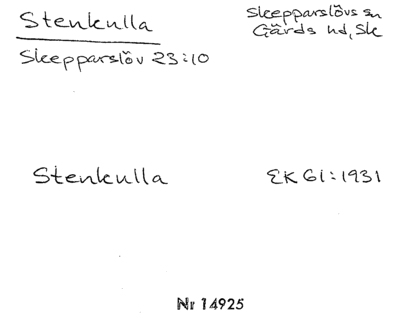 Stenkulla
Skepparslövs sn
Gärds hd, Sk
Skepparslöv 23:10
Stenkulla
EK 61:1931
Nr 14925